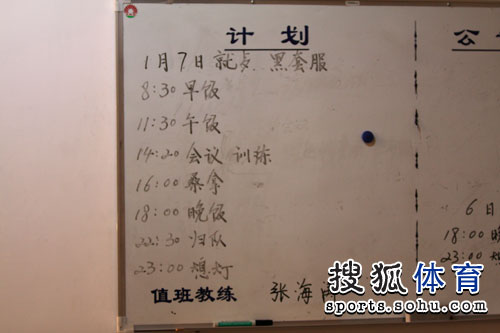 计划
公
1月7日 就点 黑套服
8:30 早饭
11:30 午饭
14:20 会议 训练
16:00 桑拿
18:00 晚饭
22:30 归队
23:00 熄灯
6日
18:00 晚
23:00 熄
值班教练 张海
搜狐体育
sports.sohu.com